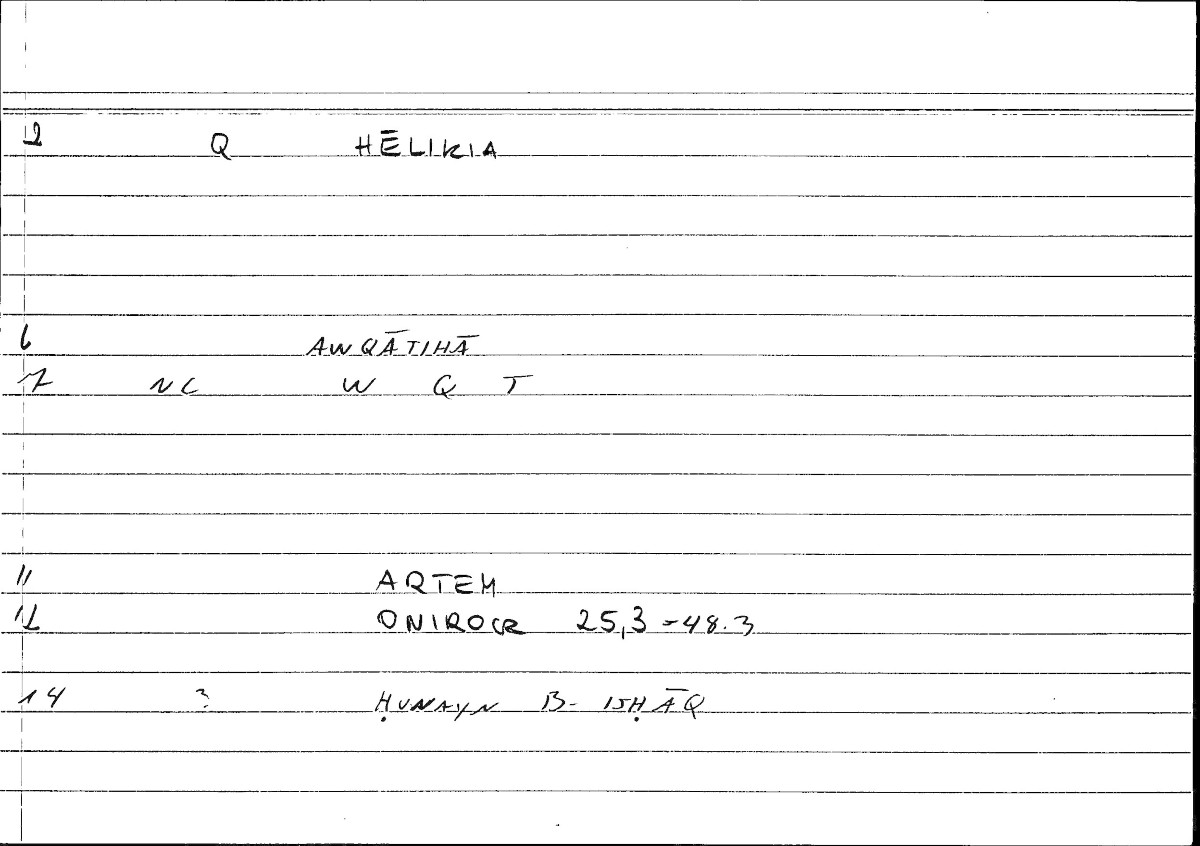 2 Q HĒLIKIA
6 AWQĀTIHĀ
7 NC W Q T
11 ARTEM
12 ONIROCR 25,3-48.3
14 ? ḤUNAYN B- ISḤĀQ